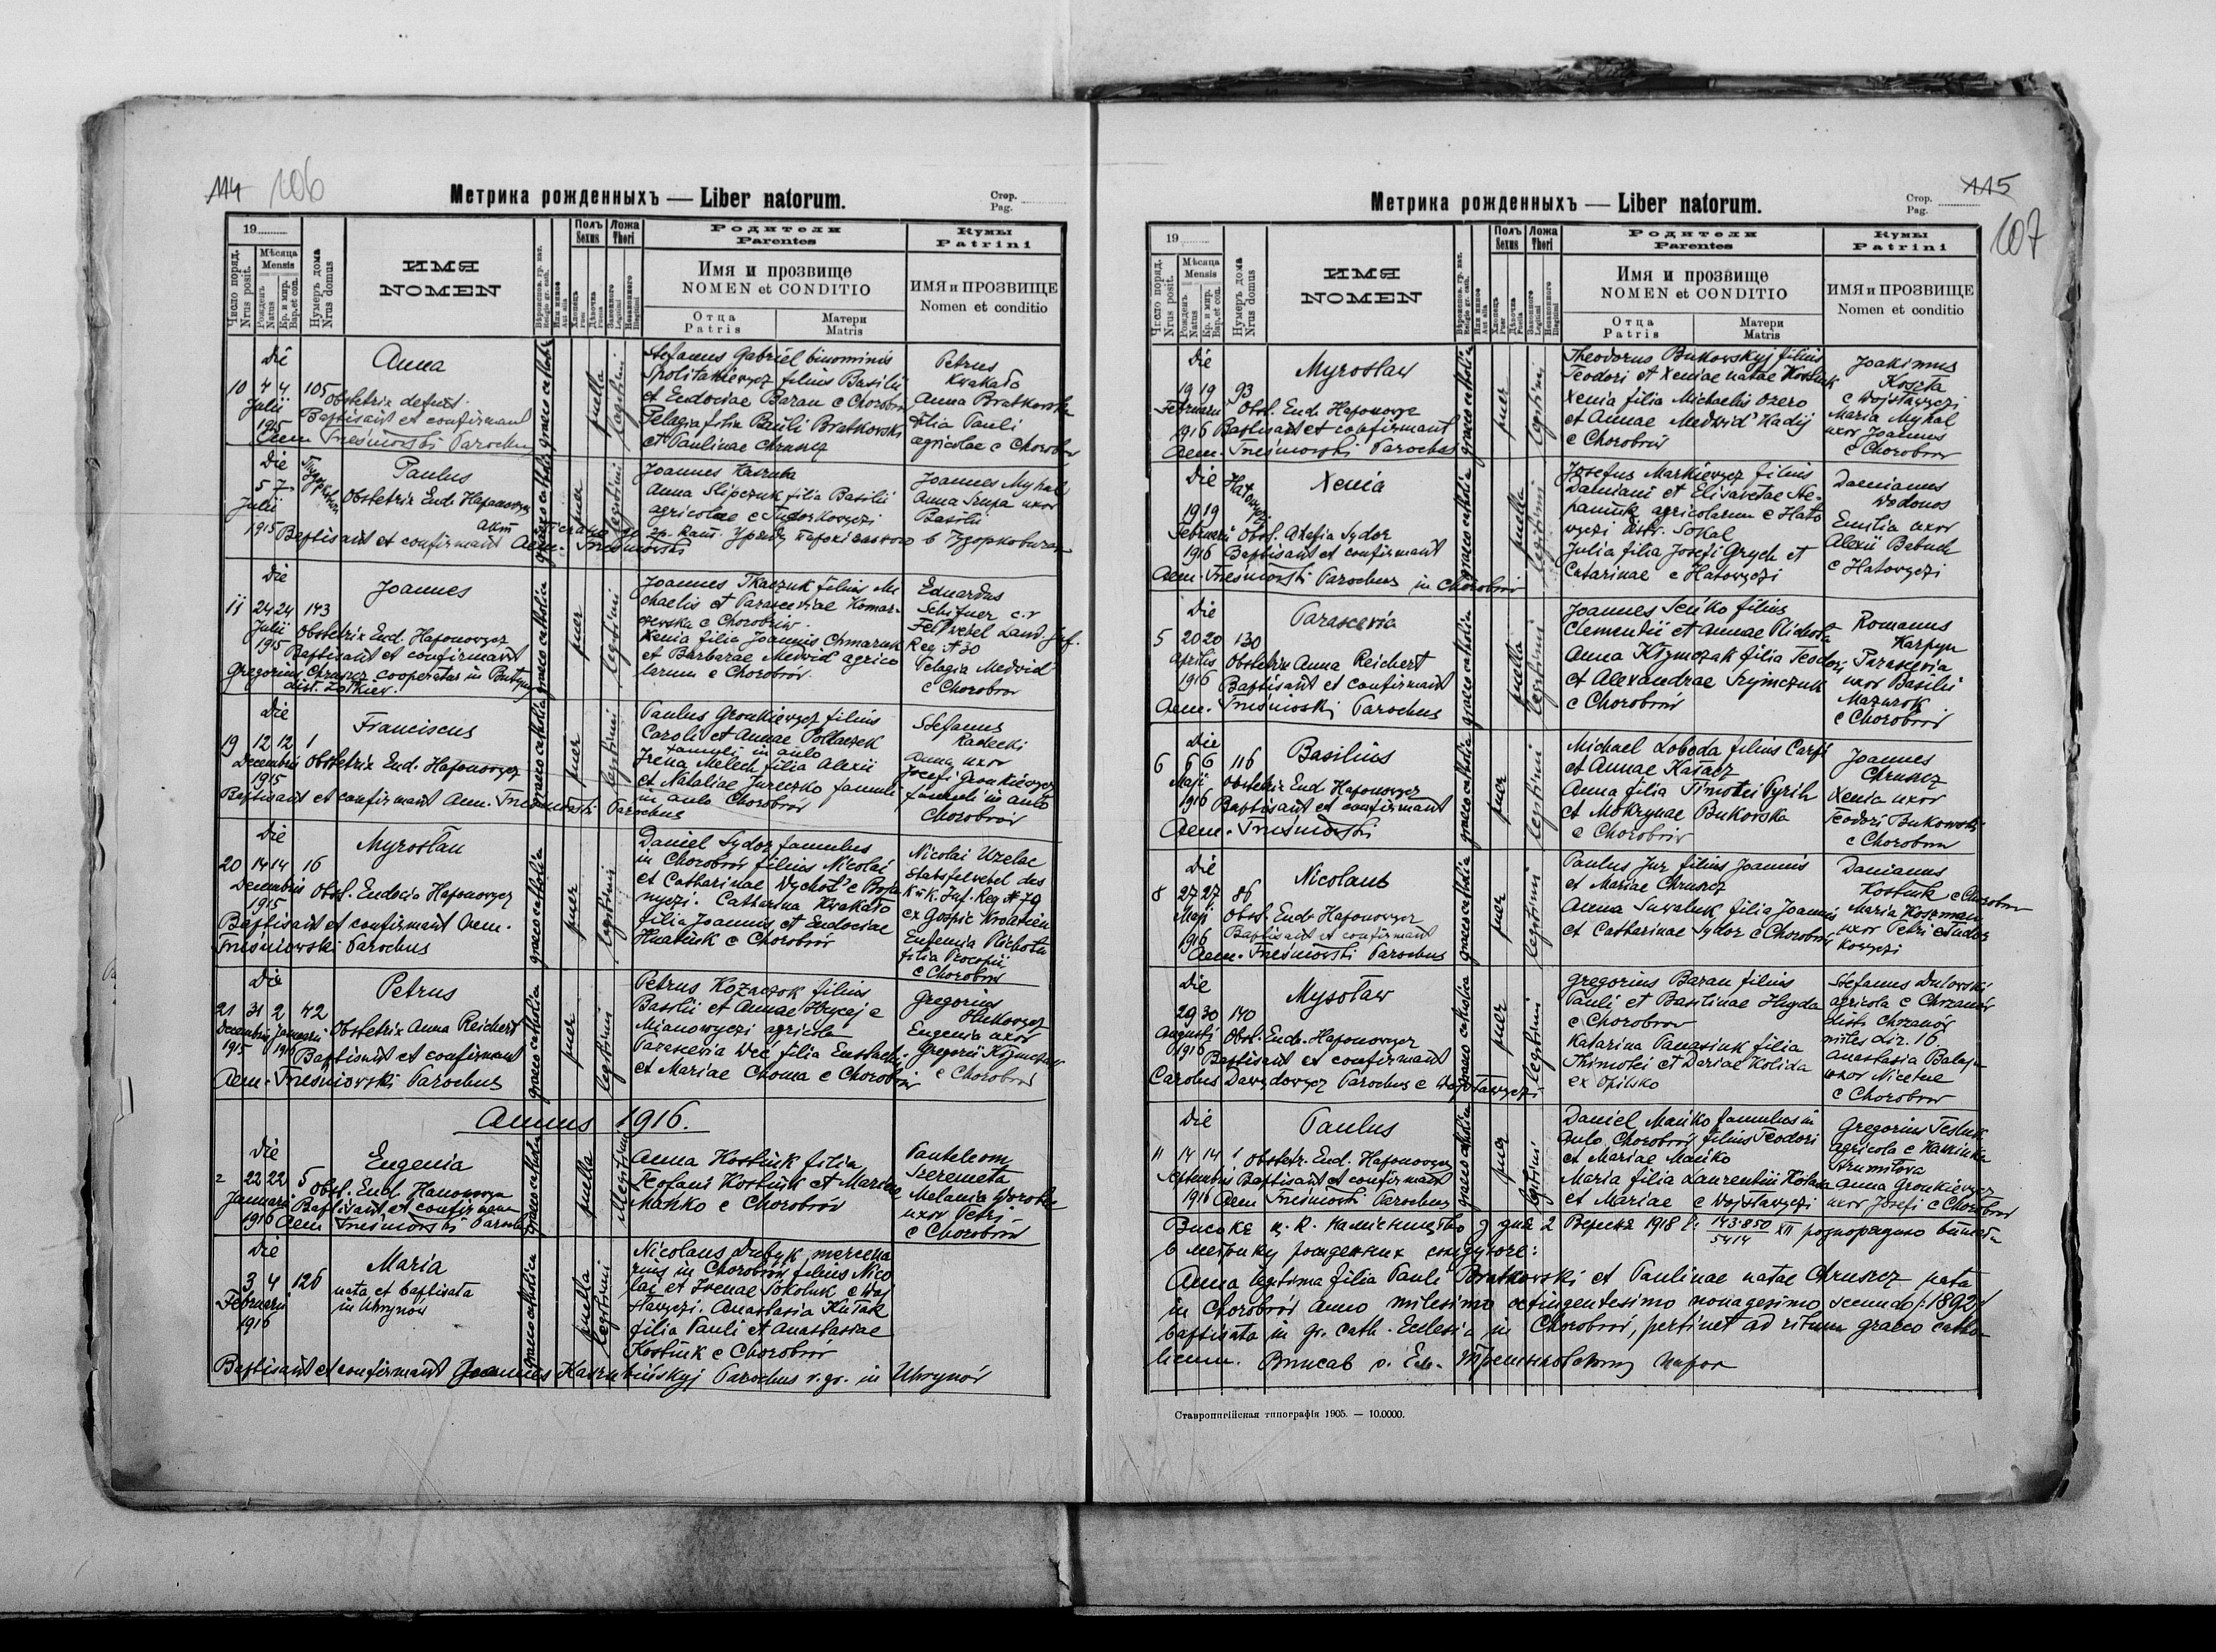 114 106
Метрика рожденныхъ — Liber natorum.
Стор.
Pag.
19
Число поряд.
Nrus posit.
Мѣсяца
Mensis
Рожденъ
Natus
Кр. и мир.
Bap. et con.
Нумеръ дома
Nrus domus
ИМЯ
NOMEN
Полъ
Sexus
Ложа
Thori
Родители
Parentes
Имя и прозвище
NOMEN et CONDITIO
Отца
Patris
Матери
Matris
Кумы
Patrini
ИМЯ и ПРОЗВИЩЕ
Nomen et conditio
Die
10 4 4 105
Julii
1915
Anna
Obstetrix defuit.
Baptisavit et confirmavit
Aem. Treśniowski Parochus
graeco catholica
puella
legitimi
Stefanus Gabriel binominis
Spolitakiewycz filius Basilii
et Eudociae Baran e Chorobrów
Pelagia filia Pauli Bratkowski
et Paulinae Chruszcz
Petrus
Kwakało
Anna Bratkowska
filia Pauli
agricolae e Chorobrów
Die
5 7
Julii
1915
Paulus
Obstetrix Eud. Hafonowycz
Baptisavit et confirmavit Aem. Treśniowski
graeco catholica
puer
legitimi
Joannes Kaszuba
Anna Slipczuk filia Basilii
agricolae e Tudorkowyczi
Joannes Myhal
Anna Szupa uxor
Basilii
Die
11 24 24 143
Julii
1915
Joannes
Obstetrix Eud. Hafonowycz
Baptisavit et confirmavit
Gregorius Chruszcz cooperator in Butyny
dist. Żółkiew.
graeco catholica
puer
legitimi
Joannes Tkaczuk filius Mi
chaelis et Parasceviae Komar-
czewska e Chorobrów.
Xenia filia Joannis Chmaruk
et Barbarae Medwid agrico
larum e Chorobrów.
Eduardus
Schifner c.r
Feldwebel Land. Inf.
Reg. № 30
Pelagia Medwid
e Chorobrow
Die
19 12 12 1
Decembris
1915
Franciscus
Obstetrix Eud. Hafonowycz
Baptisavit et confirmavit Aem. Treśniowski Parochus
graeco catholica
puer
legitimi
Paulus Gronkiewycz filius
Caroli et Annae Pollaczek
famuli in aulo
Irena Melech filia Alexii
et Nataliae Jureczko famuli
in aulo Chorobrów
Stefanus
Radecki
Anna uxor
Josefi Gronkiewycz
famuli in aulo
Chorobrów
Die
20 14 14 16
Decembris
1915
Myrosłau
Obst. Eudocia Hafonowycz
Baptisavit et confirmavit Aem.
Treśniowski Parochus
graeco catholica
puer
legitimi
Daniel Sydor famulus
in Chorobrów filius Nicolai
et Catharinae Wychot e Boja
nyczi. Catharina Kwakało
filia Joannis et Eudociae
Hnatiuk e Chorobrów
Nicolai Uzelac
Stabsfelvebel des
K u K. Inf. Reg № 79
ex Gospić Kroatien
Eufemia Plichota
filia Procopii
e Chorobrów
Die
21 31 2 42
Decembris Januarii
1915 1916
Petrus
Obstetrix Anna Reichert
Baptisavit et confirmavit
Aem. Treśniowski Parochus
graeco catholica
puer
legitimi
Petrus Kozaczok filius
Basilii et Annae Hrycaj e
Mianowyczi agricola
Parascevia Weć filia Eustachi
et Mariae Choma e Chorobrów
Gregorius
Hukowycz
Eugenia uxor
Gregorii Kłymczak
e Chorobrów
Annus 1916.
Die
2 22 22 5
Januarii
1916
Eugenia
Obst. Eud. Hanonowycz
Baptisavit et confirmavit
Aem Treśniowski Parochus
graeco catholica
puella
illegitimi
Anna Kostiuk filia
Teofani Kostiuk et Mariae
Mańko e Chorobrów
Panteleom
Szeremeta
Melania Worobec
uxor Petri
e Chorobrów
Die
3 4 126
Februarii
1916
Maria
nata et baptisata
in Uhrynów
graeco catholica
puella
legitimi
Nicolaus Dubyk mercena
rius in Chorobrów filius Nico
lai et Irenae Sokoluk e Woj
sławyczi. Anastasia Kułak
filia Pauli et Anastasiae
Kostiuk e Chorobrów
Baptisavit et confirmavit Joannes Kaszubińskyj Parochus r. gr. in Uhrynów
115
107
Метрика рожденныхъ — Liber natorum.
Стор.
Pag.
19
Число поряд.
Nrus posit.
Мѣсяца
Mensis
Рожденъ
Natus
Кр. и мир.
Bap. et con.
Нумеръ дома
Nrus domus
ИМЯ
NOMEN
Полъ
Sexus
Ложа
Thori
Родители
Parentes
Имя и прозвище
NOMEN et CONDITIO
Отца
Patris
Матери
Matris
Кумы
Patrini
ИМЯ и ПРОЗВИЩЕ
Nomen et conditio
Die
19 19 93
Februarii
1916
Myrosław
Obst. Eud. Hafonowycz
Baptisavit et confirmavit
Aem. Treśniowski Parochus
graeco catholica
puer
legitimi
Theodorus Bukowskyj filius
Teodori et Xeniae natae Kostiuk
Xenia filia Michaelis Ozero
et Annae Medwid' Hadij
e Chorobrów
Joakimus
Koszta
e Wojsławyczi
Maria Myhal
uxor Joannis
e Chorobrow
Die
19 19
Februarii
1916
Xenia
Obst. Akafia Sydor
Baptisavit et confirmavit
Aem. Treśniowski Parochus in Chorobrów
graeco catholica
puella
legitimi
Josefus Markiewycz filius
Damiani et Elisavetae Ste-
paniuk agricolarum e Hato
wyczi distr. Sokal
Julia filia Josefi Grych et
Catarinae e Hatowyczi
Damianus
Wodonos
Emilia uxor
Alexii Babuch
e Hatowyczi
Die
5 20 20 130
Aprilis
1916
Parascevia
Obstetrix Anna Reichert
Baptisavit et confirmavit
Aem. Treśniowski Parochus
graeco catholica
puella
legitimi
Joannes Seńko filius
Clementii et Annae Plichota
Anna Kłymczak filia Teodori
et Alexandrae Szymczuk
e Chorobrów
Romanus
Karpyn
Parascevia
uxor Basilii
Mazurok
e Chorobrów
Die
6 6 6 116
Maji
1916
Basilius
Obstetrix Eud. Hafonowycz
Baptisavit et confirmavit
Aem. Treśniowski
graeco catholica
puer
legitimi
Michael Łoboda filius Carpi
et Annae Kałacz
Anna filia Timotei Pyrih
et Mokrynae Bukowska
e Chorobrów
Joannes
Chruszcz
Xenia uxor
Teodori Bukowski
e Chorobrow
Die
8 27 27 86
Maji
1916
Nicolaus
Obst. Eud. Hafonowycz
Baptisavit et confirmavit
Aem. Treśniowski Parochus
graeco catholica
puer
legitimi
Paulus Jur filius Joannis
et Mariae Chruszcz
Anna Suvaluk filia Joannis
et Catharinae Sydor e Chorobrów
Damianus
Kostiuk e Chorobrow
Maria Koszman
uxor Petri e Tudor
kowyczi
Die
29 30 140
Augusti
1916
Mysoław
Obst. Eud. Hafonowycz
Baptisavit et confirmavit
Carolus Dawydowycz Parochus e Wojsławyczi
graeco catholica
puer
legitimi
Gregorius Baran filius
Pauli et Basilinae Huyda
e Chorobrow
Katarina Panasiuk filia
Thimotei et Dariae Kolida
ex Opilsko
Stefanus Dulowski
agricola e Chrzanów
distr. Chrzanów
miles Lir. 16
Anastasia Balaj
uxor Nicetae
e Chorobrow
Die
11 14 14 1
Septembris
1916
Paulus
Obstetr. Eud. Hafonowycz
Baptisavit et confirmavit
Aem Treśniowski Parochus
graeco catholica
puer
legitimi
Daniel Mańko famulus in
aulo Chorobrów filius Teodori
et Mariae Mańko
Maria filia Laurentii Kołada
et Mariae e Wojsławyczi
Gregorius Tesluk
agricola e Kaminka
Strumiłowa
Anna Gronkiewycz
uxor Josefi e Chorobrow
Високе ц. к. намісництво з дня 2 Вересня 1918 Ч: 143·850/5414 XII розпорядило внести
в метрику рождених слідуюче:
Anna legitima filia Pauli Bratkowski et Paulinae natae Chruszcz nata
in Chorobrów anno milesimo octingentesimo nonagesimo secundo /:1892/
baptisata in gr. cath. Eclesia in Chorobrów, pertinet ad ritum graeco catho-
licum. Вписав о. Ем. Трешньовський парох
Ставропигійская типографія 1905. — 10.0000.